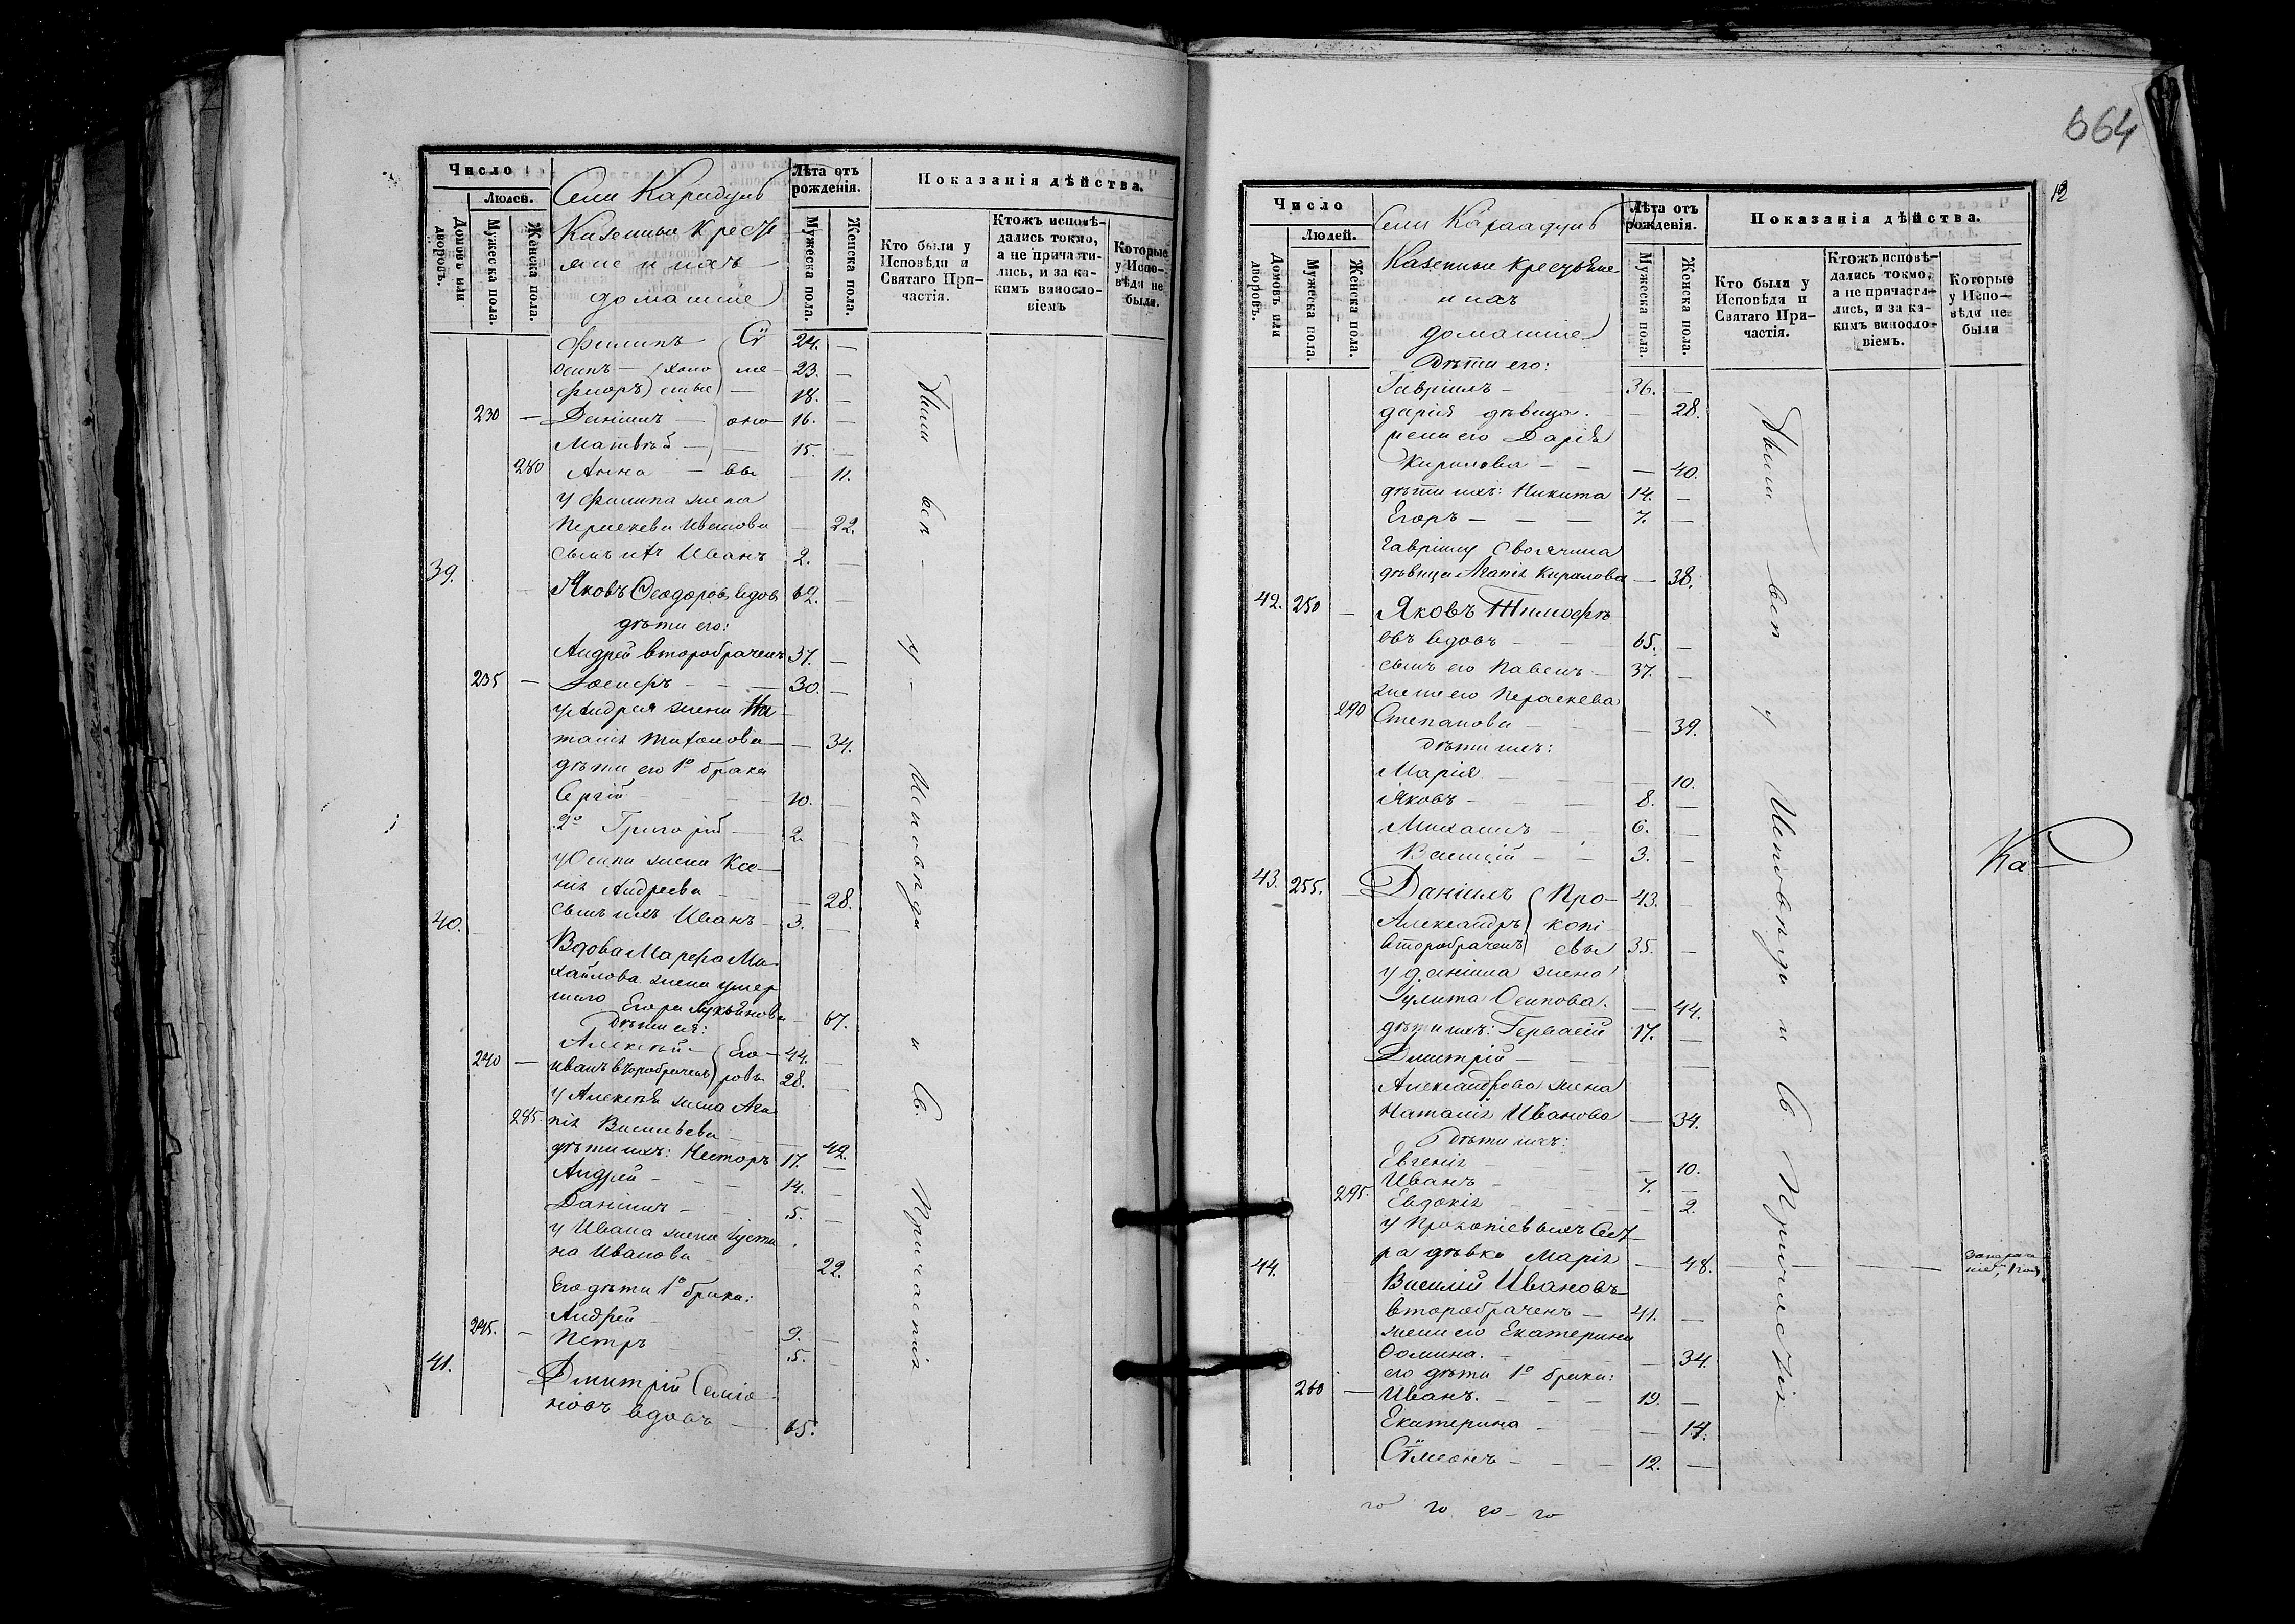 Число
Людей.
Домовъ или дворовъ.
Мужеска пола.
Женска пола.
Села Карадулъ
Казенные Крестья
не и ихъ
домашніе
Лѣта отъ рожденія.
Мужеска пола.
Женска пола.
Показанія дѣйства.
Кто были у Исповѣди и Святаго При-
частія.
Ктожъ исповѣ-
дались токмо,
а не причасти-
лись, и за ка-
кимъ винosло-
віемъ
Которые
у Испо-
вѣди не
были.
Филипъ 24. —
Осипъ — холо 23. —
Флоръ стые — 18. —
230 — Даніилъ — 16. —
Матвѣй — 15. —
280 Анна — вы — 11.
у Филипа жена
Параскева Иванова — 22.
сынъ ихъ Иванъ 2. —
39. — Яковъ Ѳеодоровъ вдовъ 62. —
дѣти его:
Андрей второбраченъ 37. —
235 — Іосифъ — — 30. —
у Андрея жена На
талія Тихонова — 34.
дѣти его 1º брака
Сергій 10. —
2º Григорій — 2. —
у Осипа жена Ксе—
нія Андреева — 28.
сынъ ихъ Иванъ 3. —
40. — Вдова Марѳа Ми—
хайлова жена умер
шаго Егора Лукьянова — 67.
Дѣти ея:
Алексѣй — Его— 44. —
240 — Иванъ второбраченъ ровы 28. —
у Алексѣя жена Ага
285. пія Васильева — 42.
дѣти ихъ: Несторъ 17. —
Андрей — 14. —
Даніилъ — 5. —
у Ивана жена Іусти
на Иванова 22.
Его дѣти 1º брака:
Андрей 9. —
245. — Петръ 5. —
41. — Дмитрій Семіо
новъ вдовъ — 65.
Были всѣ у Исповѣди и Св. Причастія
664
12
Число
Людей.
Домовъ или дворовъ.
Мужеска пола.
Женска пола.
Села Караадулъ
Казенные крестьяне
и ихъ
домашніе
Лѣта отъ рожденія.
Мужеска пола.
Женска пола.
Показанія дѣйства.
Кто были у
Исповѣди и
Святаго При-
частія.
Ктожъ исповѣ-
дались токмо,
а не причасти-
лись, и за ка-
кимъ винoсло-
віемъ.
Которые
у Испо-
вѣди не
были
Дѣти его:
Гавріилъ — 36. —
дарія дѣвица. — 28.
жена его Дарія
Кирилова — — — 40.
дѣти ихъ: Никита 14. —
Егоръ — — — 7. —
Гавріилу своячина
дѣвица Агапія Кирилова — 38.
42. 250 — Яковъ Тимоѳе
евъ вдовъ 65. —
сынъ его Павелъ — 37. —
жена его Параскева
290 Степанова — 39.
Дѣти ихъ:
Марія — 10.
Яковъ — — 8. —
Михаилъ — 6. —
Василій — 3. —
43. 255. — Даніилъ Про— 43. —
Александръ копі—
второбраченъ евы 35. —
у даніила жена
Іулита Осипова. — 44.
дѣти ихъ: Гервасій 17. —
Дмитрій — —
Александрова жена
Наталія Иванова — 34.
Дѣти ихъ:
Евгенія — 10.
Иванъ — 7. —
295. Евдокія — 2.
у Прокопіевыхъ сест
ра дѣвка Марія — 48.
44. — Василій Ивановъ
второбраченъ — 41. —
жена его Екатерина
Ѳомина. — 34.
его дѣти 1º брака:
260 — Иванъ. — — 19. —
Екатерина — 14.
Сѵмеонъ — — 12. —
Были всѣ у Исповѣди и Св. Причастія
Ка
го го го — го